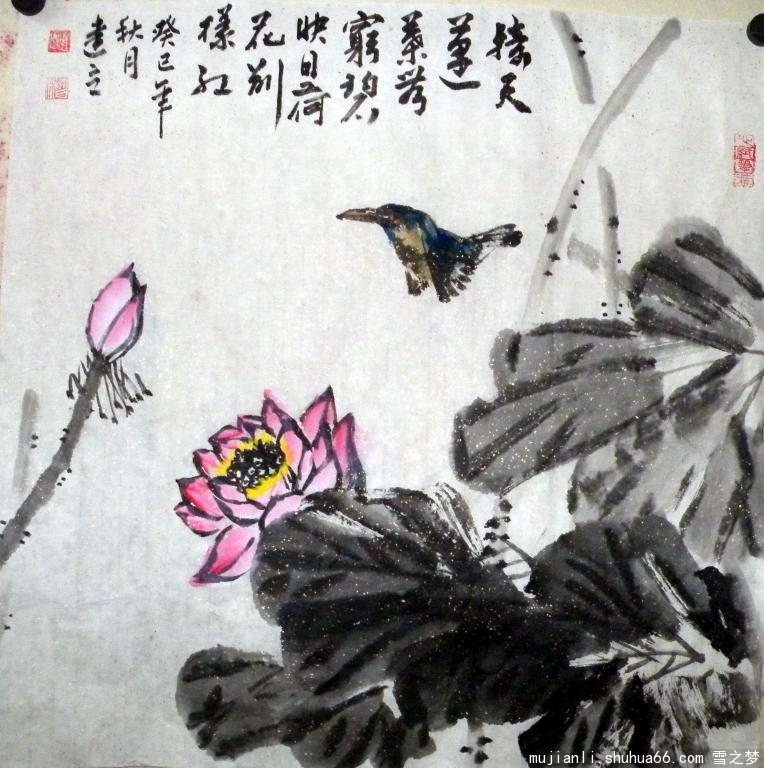 接天
蓮
葉無
窮碧
映日荷
花别
樣红
癸巳年
秋月
建立
mujianli.shuhua66.com 雪之梦